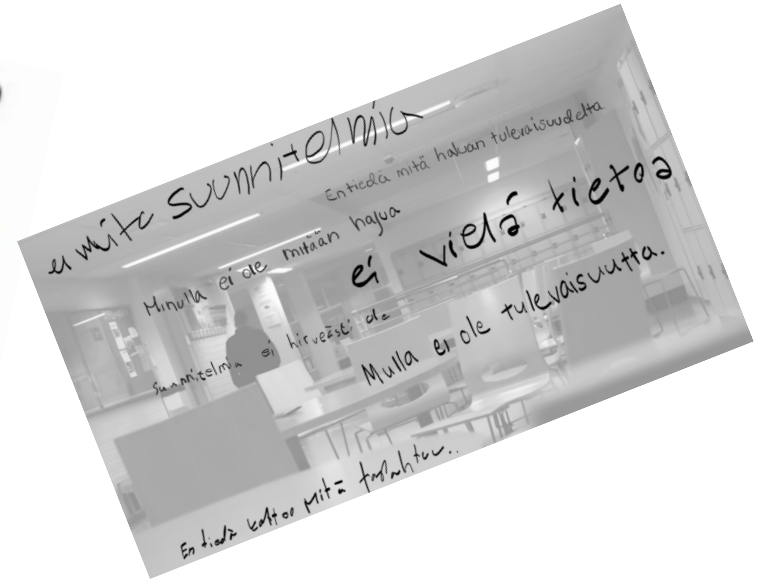 ei mitä suunnitelmia
En tiedä mitä haluan tulevaisuudelta
Minulla ei ole mitään hajua
ei vielä tietoa
Suunnitelmia ei hirveästi ole
Mulla ei ole tulevaisuutta.
En tiedä mitä